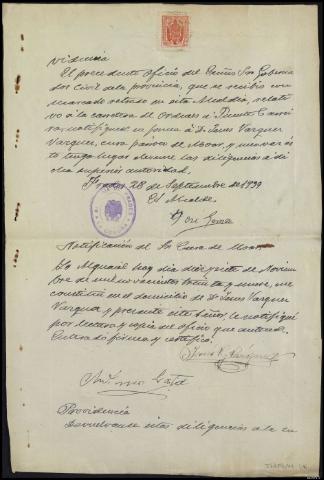 Videncia
El precedente oficio del Señor Goberna
dor Civil de la provincia, que se recibió con
marcado retraso en esta Alcaldía, relati
vo a la carretera de Ordenes a Puente Carrei
ra, notifíquese en forma a D. Vazquez
Vazquez, cura párroco de Moar, y una vez
tenga lugar devuelvanse las diligencias a di
cha superior autoridad.
Frades 28 de Septiembre de 1939
El Alcalde
José
Notificación del Sr Cura de Moar
Yo Alguacil hoy día diez y siete de Noviem
bre de mil novecientos treinta y nueve, me
constituí en el domicilio de D. Vazquez
Vazquez y presente este Señor, le notifiqué
por lectura y copia el oficio que antecede.
Enterado firma y certifico.
Vázquez
Antonio
Providencia
Devuelvanse estas diligencias a la su